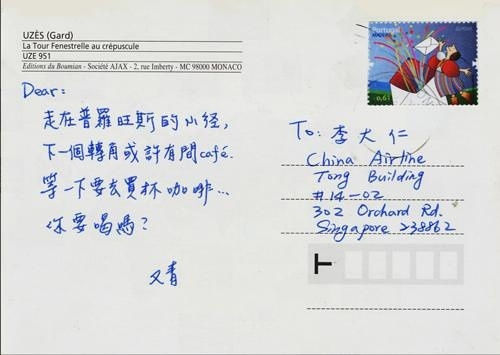 UZÈS (Gard)
La Tour Fenestrelle au crépuscule
UZE 951
Editions du Boumian - Société AJAX - 2, rue Imberty - MC 98000 MONACO
Portugal
0,61
Dear:
走在普羅旺斯的小徑,
下一個轉角或許有間café.
等一下要去買杯咖啡...
你要喝嗎?
又青
To: 李大仁
China Airline
Tong Building
#14-02
302 Orchard Rd.
Singapore 238862